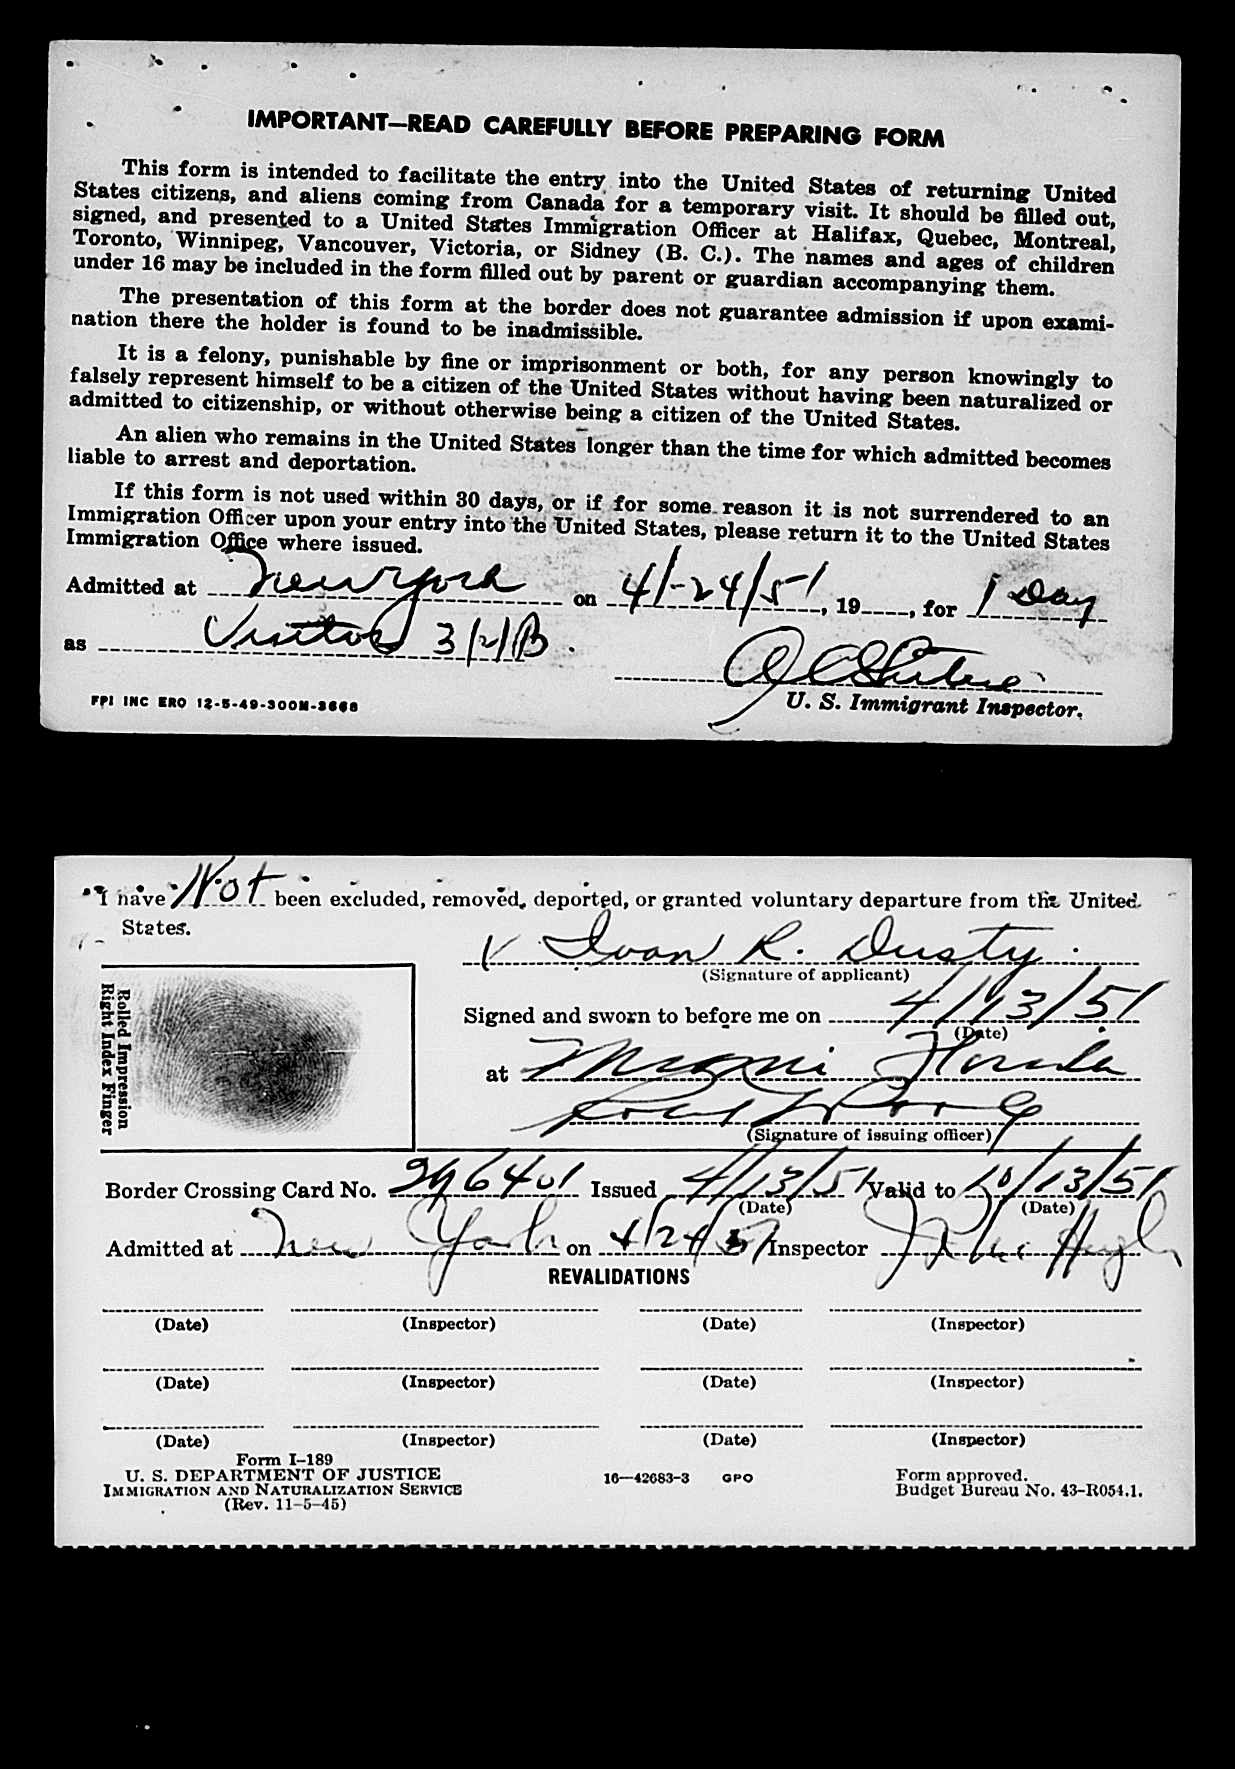 IMPORTANT—READ CAREFULLY BEFORE PREPARING FORM
This form is intended to facilitate the entry into the United States of returning United
States citizens, and aliens coming from Canada for a temporary visit. It should be filled out,
signed, and presented to a United States Immigration Officer at Halifax, Quebec, Montreal,
Toronto, Winnipeg, Vancouver, Victoria, or Sidney (B. C.). The names and ages of children
under 16 may be included in the form filled out by parent or guardian accompanying them.
The presentation of this form at the border does not guarantee admission if upon exami-
nation there the holder is found to be inadmissible.
It is a felony, punishable by fine or imprisonment or both, for any person knowingly to
falsely represent himself to be a citizen of the United States without having been naturalized or
admitted to citizenship, or without otherwise being a citizen of the United States.
An alien who remains in the United States longer than the time for which admitted becomes
liable to arrest and deportation.
If this form is not used within 30 days, or if for some reason it is not surrendered to an
Immigration Officer upon your entry into the United States, please return it to the United States
Immigration Office where issued.
Admitted at New York on 4/-24/51, 19____, for 1 Day
as Visitor 3/2/B.
U. S. Immigrant Inspector.
FPI INC ERO 12-5-49-300M-3668
I have Not been excluded, removed, deported, or granted voluntary departure from the United
States.
Ivan R. Dusty.
(Signature of applicant)
Rolled Impression
Right Index Finger
Signed and sworn to before me on 4/13/51
(Date)
at Miami Florida
(Signature of issuing officer)
Border Crossing Card No. 296401 Issued 4/13/51 Valid to 10/13/51
(Date) (Date)
Admitted at New York on 4/24/51 Inspector
REVALIDATIONS
(Date) (Inspector) (Date) (Inspector)
(Date) (Inspector) (Date) (Inspector)
(Date) (Inspector) (Date) (Inspector)
Form I-189
U. S. DEPARTMENT OF JUSTICE
IMMIGRATION AND NATURALIZATION SERVICE
(Rev. 11-5-45)
16—42683-3 GPO
Form approved.
Budget Bureau No. 43-R054.1.